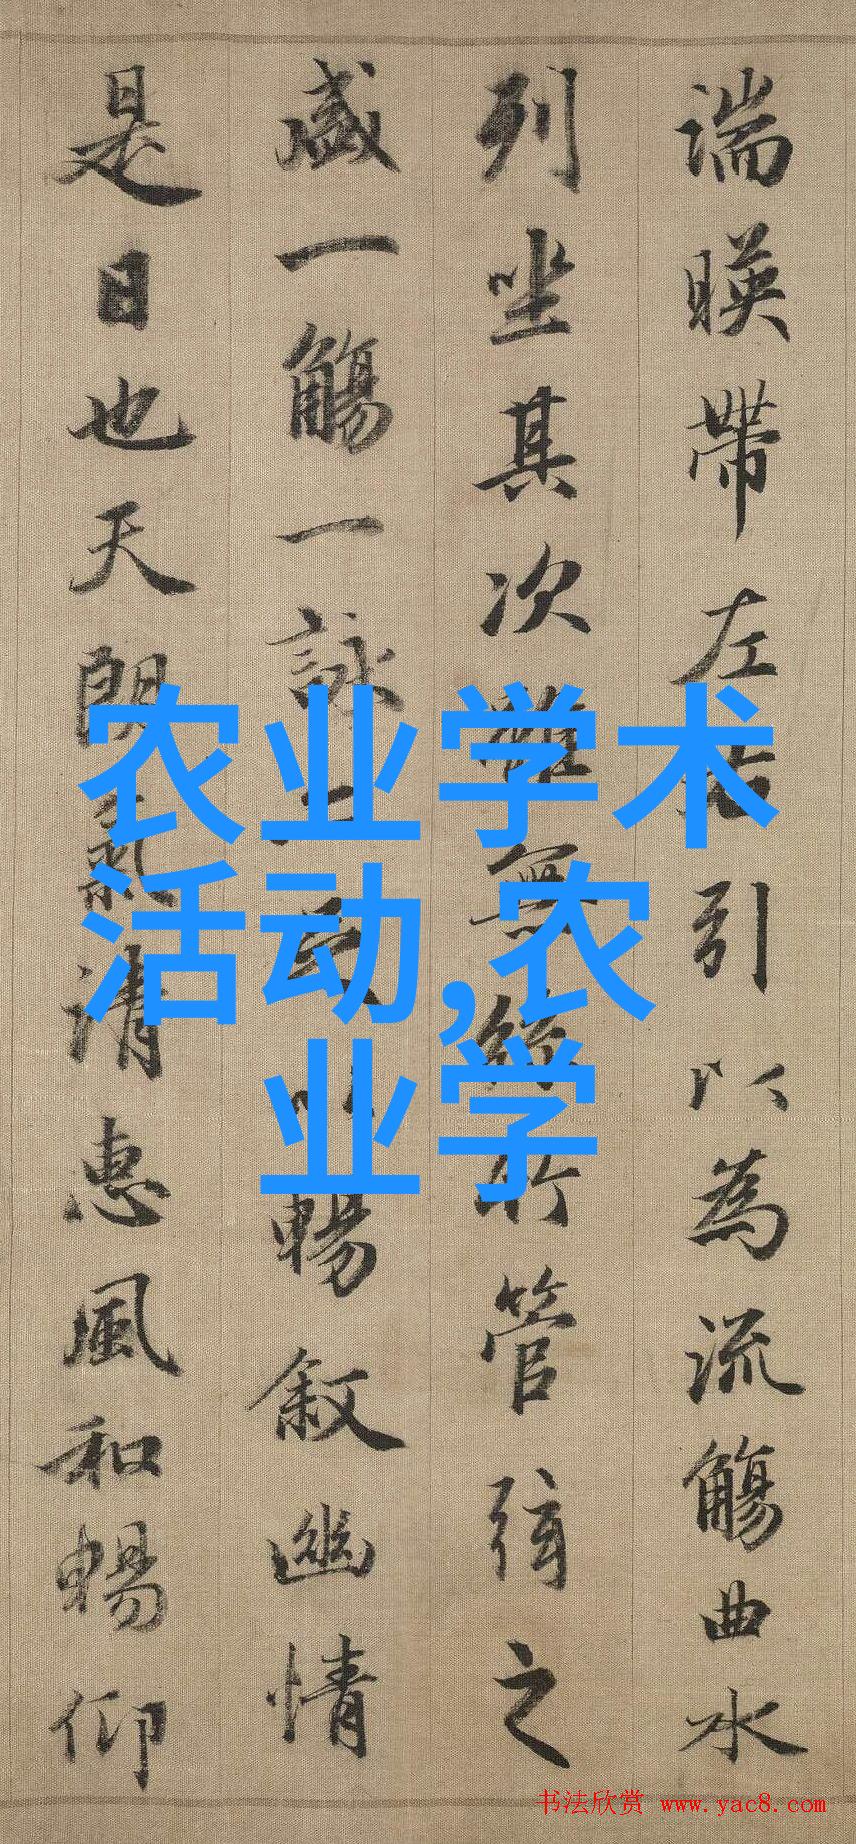 湍暎帶左右引以為流觴曲水
列坐其次雖無絲竹管弦之
盛一觴一詠亦足以暢敘幽情
是日也天朗氣清惠風和暢仰
农业学术
活动,农
业学
书法欣赏 www.yac8.com